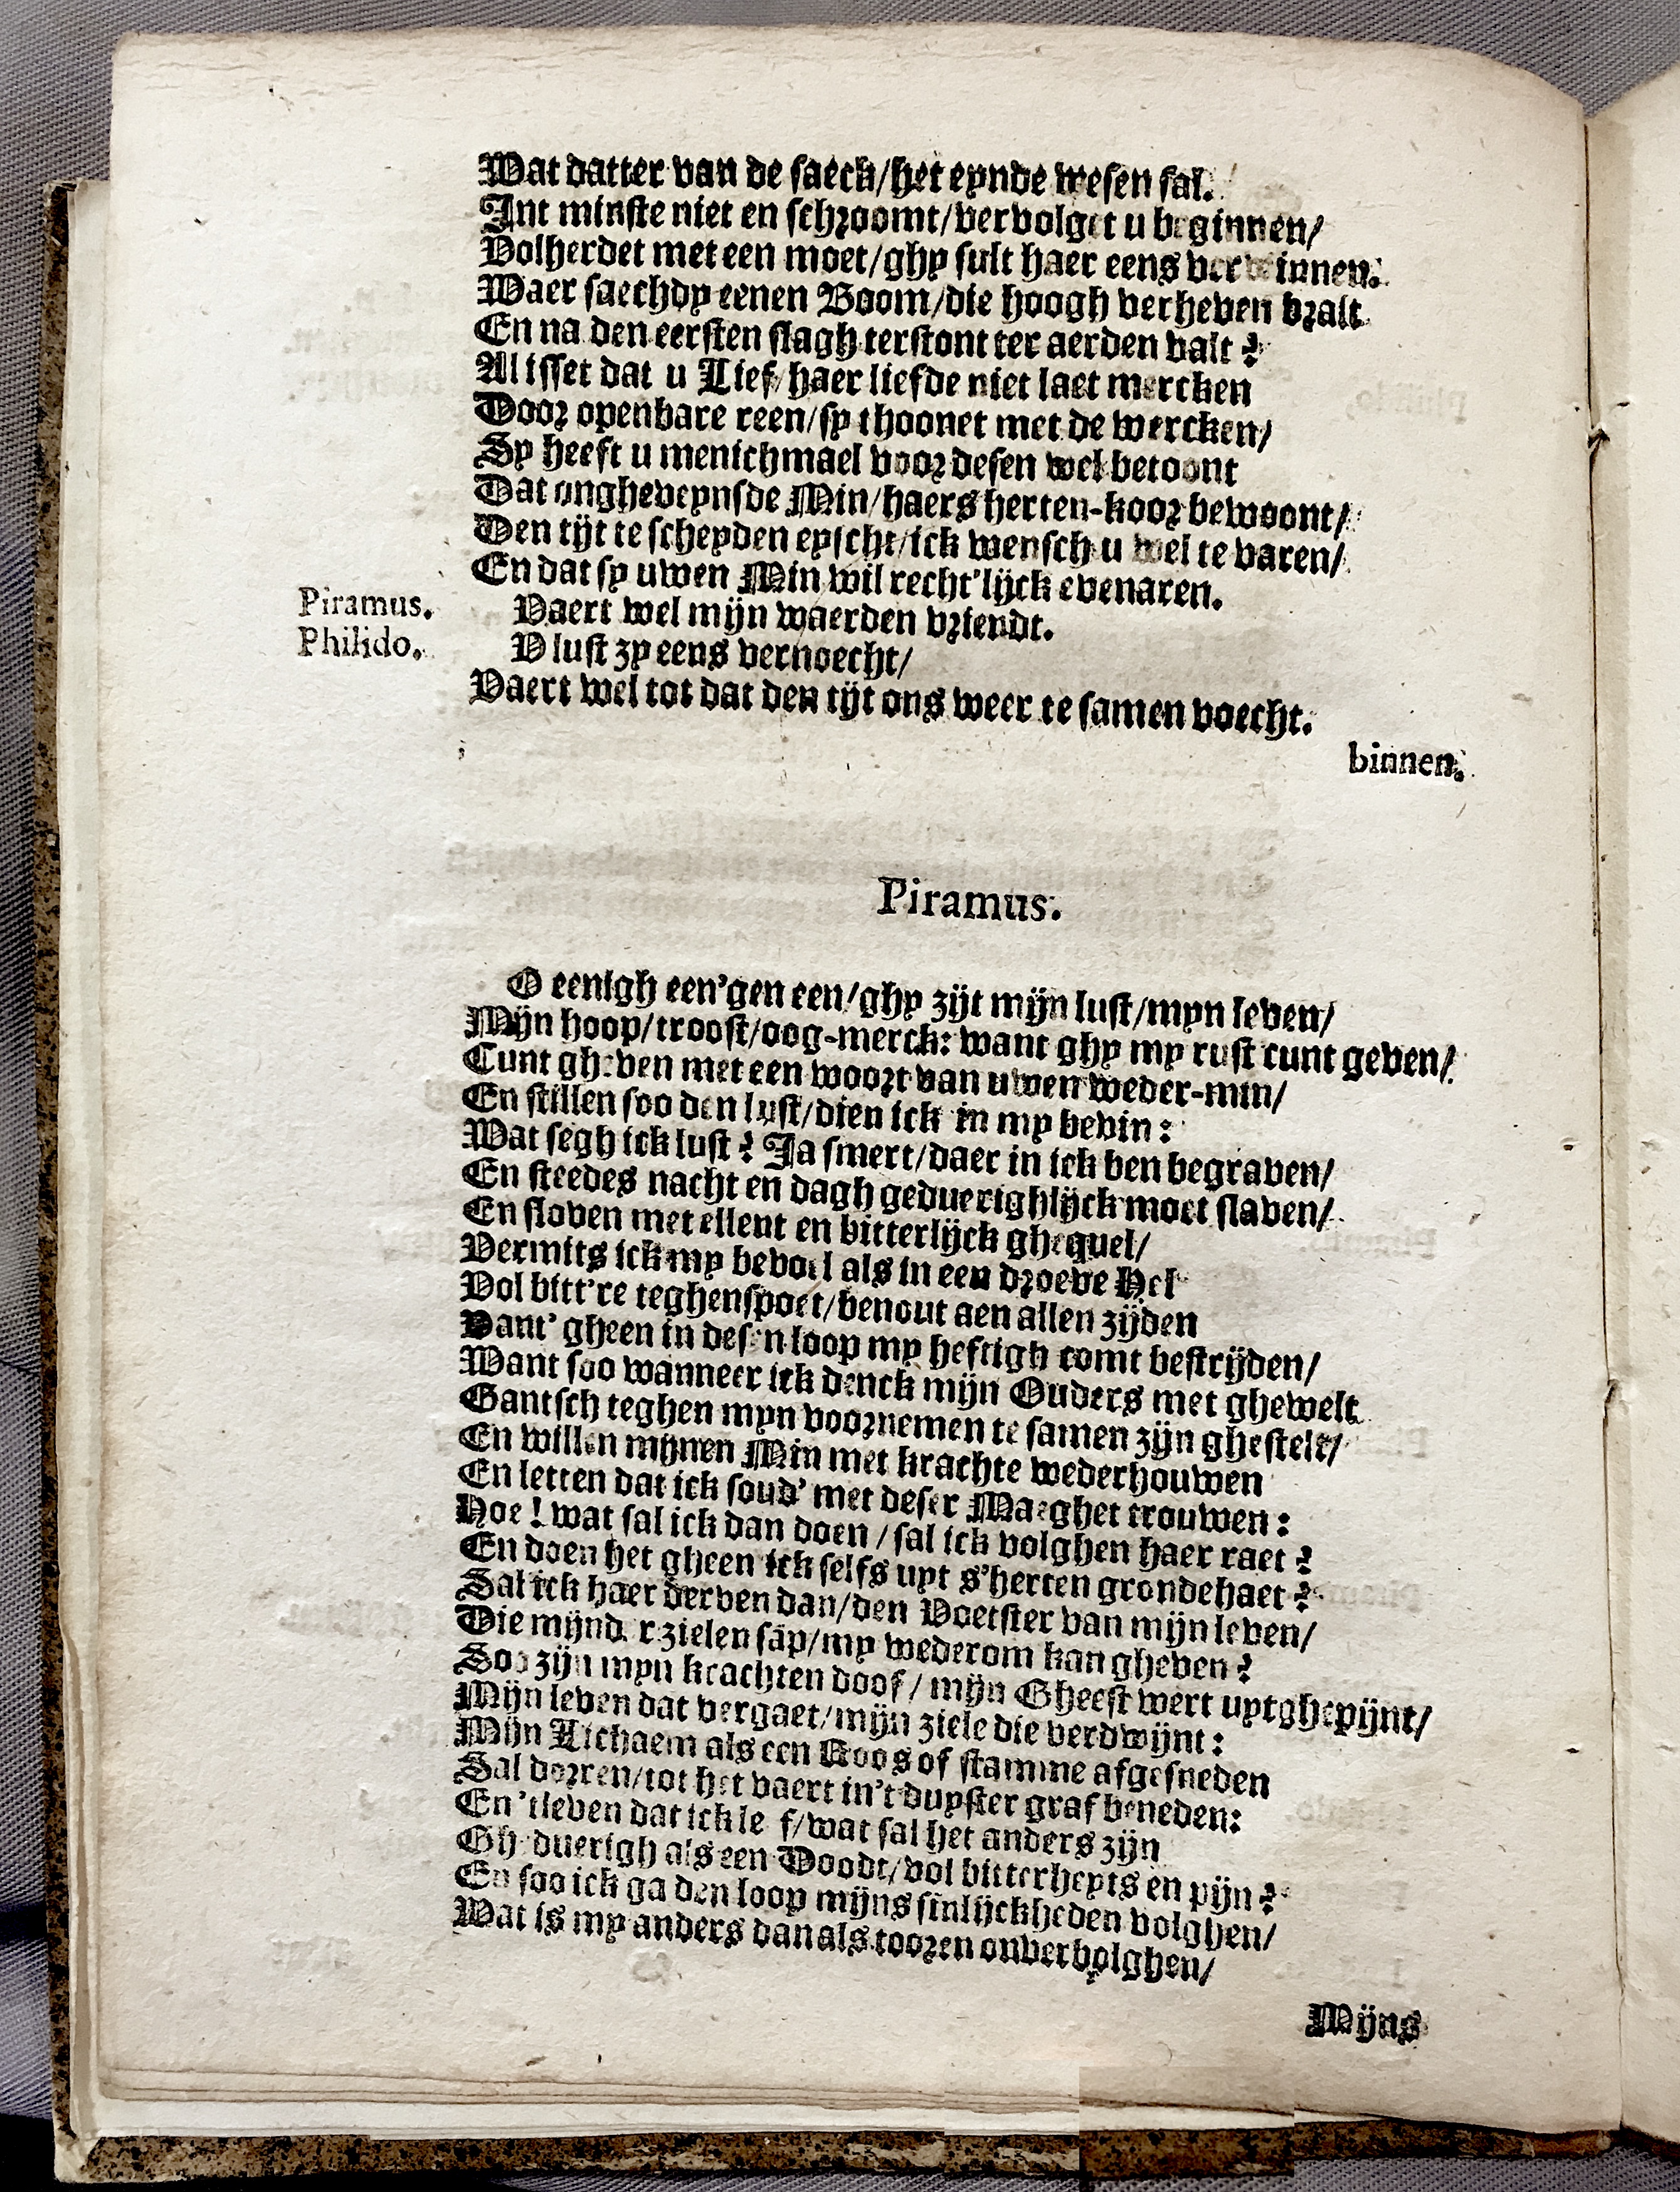 Wat datter van de saeck/het eynde wesen sal.
Int minste niet en schroomt/vervolget u beginnen/
Volherdet met een moet/ghy sult haer eens verwinnen.
Waer saechdy eenen Boom/die hoogh verheven bralt
En na den eersten slagh terstont ter aerden valt?
Al isset dat u Lief/haer liefde niet laet mercken
Door openbare reen/sy thoonet met de wercken/
Sy heeft u menichmael voor desen wel betoont
Dat ongheveynsde Min/haers herten-koor bewoont/
Den tijt te scheyden eyscht/ick wensch u wel te varen/
En dat sy uwen Min wil recht'lijck evenaren.
Piramus. Vaert wel mijn waerden vriendt.
Philido. V lust zy eens vernoecht/
Vaert wel tot dat den tijt ons weer te samen voecht.
binnen.
Piramus.
O eenigh een'gen een/ghy zijt mijn lust/myn leven/
Mijn hoop/troost/oog-merck: want ghy my rust cunt geven/
Cunt gheven met een woort van uwen weder-min/
En stillen soo den lust/dien ick in my bevin:
Wat segh ick lust? Ja smert/daer in ick ben begraven/
En steedes nacht en dagh geduerighlijck moet slaven/
En sloven met ellent en bitterlijck ghequel/
Vermits ick my bevoel als in een droeve Hel
Vol bitt're teghenspoet/benout aen allen zijden
Dant' gheen in desen loop my heftigh comt bestrijden/
Want soo wanneer ick denck mijn Ouders met ghewelt
Gantsch teghen myn voornemen te samen zijn ghestelt/
En willen mijnen Min met krachte wederhouwen
En letten dat ick soud' met deser Maeghet trouwen:
Hoe! wat sal ick dan doen/sal ick volghen haer raet?
En doen het gheen ick selfs uyt s'herten gronde haet?
Sal ick haer derven dan/den Voetster van mijn leven/
Die mijnder zielen sap/my wederom kan gheven?
Soo zijn myn krachten doof/mijn Gheest wert uytghepijnt/
Mijn leven dat vergaet/mijn ziele die verdwijnt:
Mijn Lichaem als een Roos of stamme afgesneden
Sal dorren/tot het vaert in't duyster graf beneden:
En 'tleven dat ick leef/wat sal het anders zijn
Gheduerigh als een Doodt/vol bitterheyts en pijn?
En soo ick ga den loop mijns sinlijckheden volghen/
Wat is my anders dan als tooren onverbolghen/
Mijns